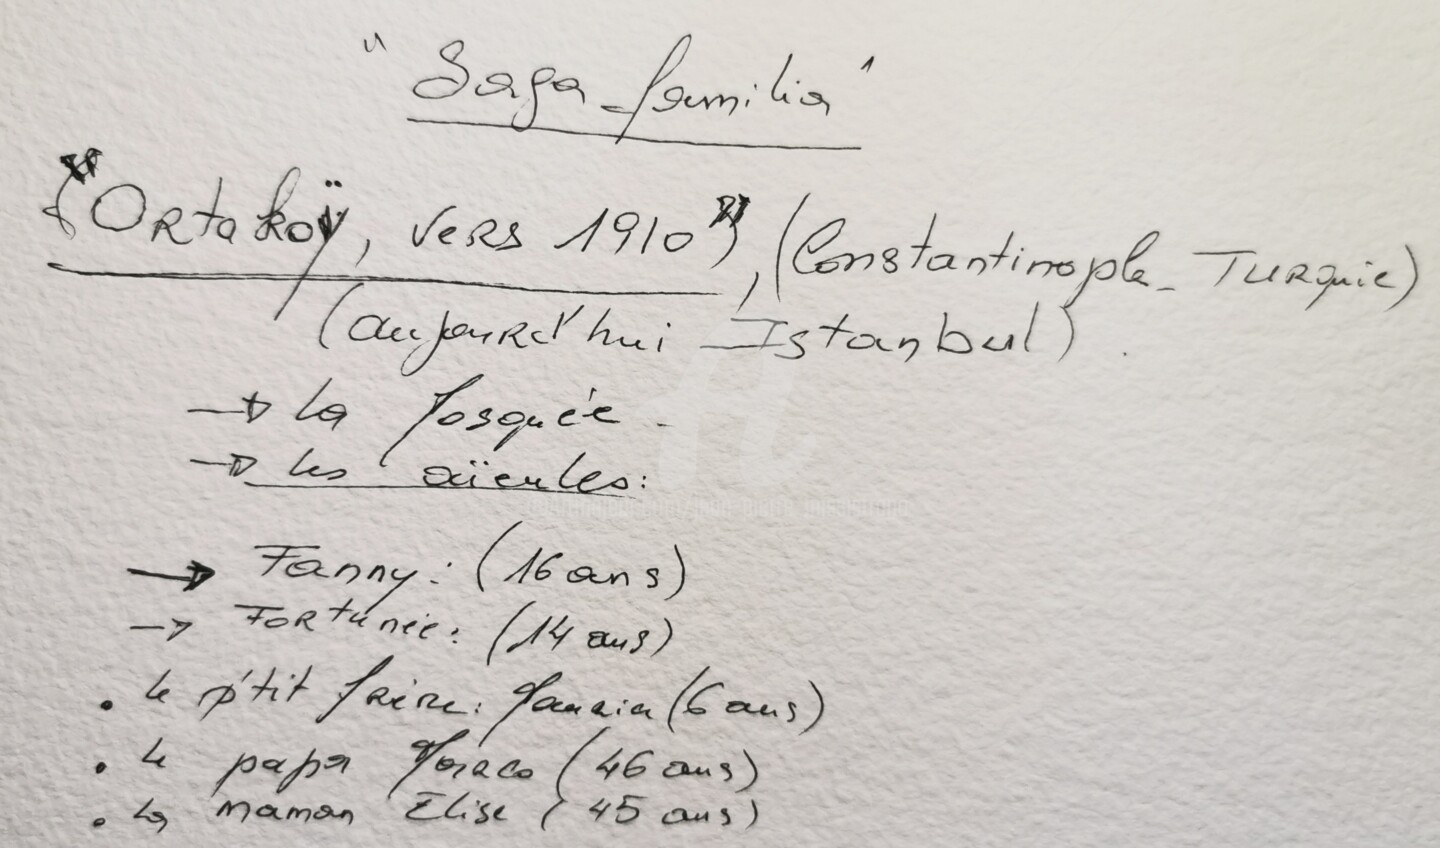 "Saga-familia"
"Ortaköÿ, vers 1910", (Constantinople - Turquie)
(aujourd'hui Istanbul).
→ la Mosquée -
→ les aïeules:
→ Fanny: (16 ans)
→ Fortunée: (14 ans)
• le p'tit frère: (6 ans)
• le papa (46 ans)
• la maman Elise (45 ans)